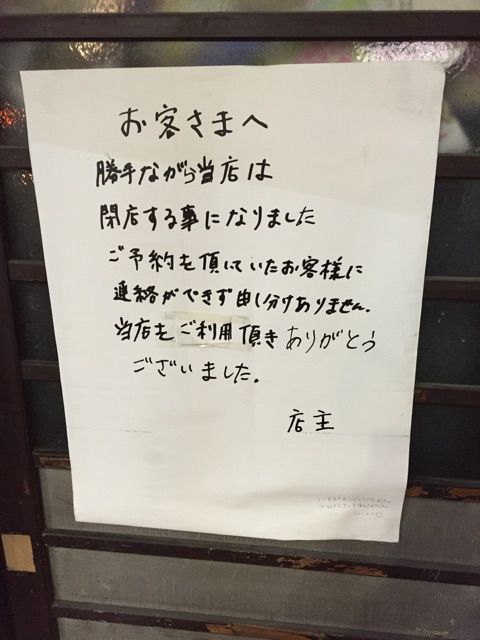 お客さまへ
勝手ながら当店は
閉店する事になりました
ご予約を頂いていたお客様に
連絡ができず申し分けありません.
当店をご利用頂きありがとう
ございました.
店主